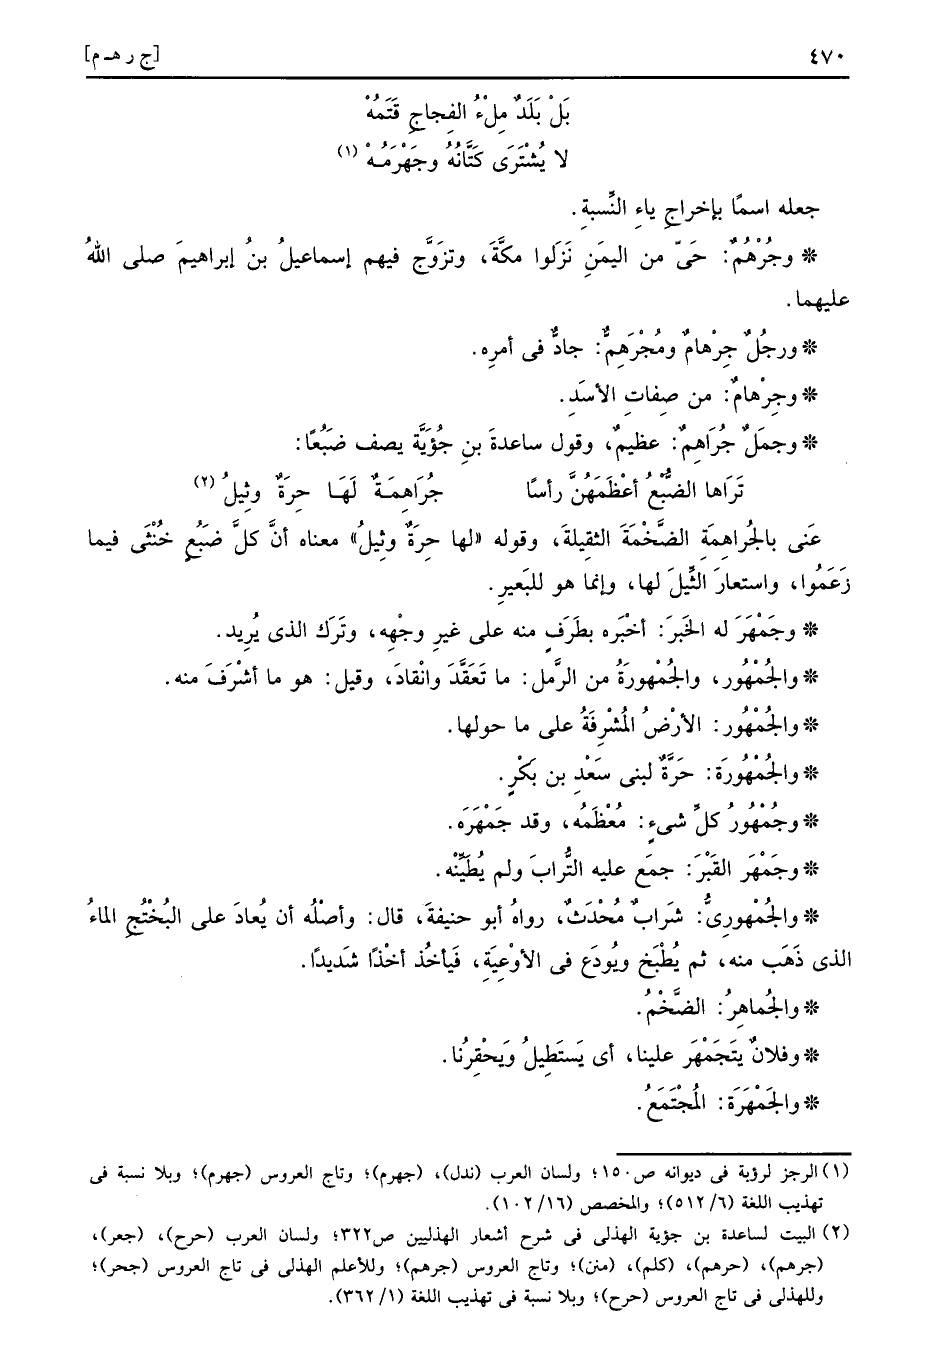 ٤٧٠ [ج ر هـ م]
بَلْ بَلَدٌ مِلْءُ الفِجاجِ قَتَمُهْ
لا يُشْتَرَى كَتَّانُهُ وجَهْرَمُهْ (١)
جعله اسمًا بإخراجِ ياءِ النِّسبةِ.
❊ وجُرْهُمٌ: حَىّ من اليمَنِ نَزَلوا مكَّةَ، وتزوَّج فيهم إسماعيلُ بنُ إبراهيمَ صلى اللهُ
عليهما.
❊ ورجُلٌ جِرْهامٌ ومُجْرَهِمٌّ: جادٌّ فى أمرِه.
❊ وجِرْهامٌ: من صفاتِ الأسَدِ.
❊ وجملٌ جُرَاهِمٌ: عظيمٌ، وقول ساعدةَ بنِ جُؤَيَّة يصف ضَبُعًا:
تَرَاها الضَّبْعُ أعْظَمَهُنَّ رأسًا جُرَاهِمَـةٌ لَهَـا حِرَةٌ وثيلُ (٢)
عَنى بالجُراهمَةِ الضَّخْمَةَ الثقيلةَ، وقوله «لها حِرَةٌ وثيلُ» معناه أنَّ كلَّ ضَبُعٍ خُنْثَى فيما
زَعَمُوا، واستعارَ الثِّيلَ لها، وإنما هو للبَعيرِ.
❊ وجَمْهَرَ له الخبَرَ: أخْبَره بطَرَفٍ منه على غيرِ وجْهِه، وتَرَك الذى يُرِيد.
❊ والجُمْهُور، والجُمْهورَةُ من الرَّمل: ما تَعَقَّدَ وانْقادَ، وقيل: هو ما أشْرَفَ منه.
❊ والجُمْهُور: الأرْضُ المُشْرِفَةُ على ما حولها.
❊ والجُمْهُورَة: حَرَّةٌ لبنى سَعْدِ بن بَكْرٍ.
❊ وجُمْهُورُ كلِّ شىءٍ: مُعْظَمُه، وقد جَمْهَرَه.
❊ وجَمْهَر القَبْرَ: جمَع عليه التُّرابَ ولم يُطَيِّنْه.
❊ والجُمْهورىُّ: شَرابٌ مُحْدَثٌ، رواهُ أبو حنيفةَ، قال: وأصْلُه أن يُعادَ على البُخْتُجِ الماءُ
الذى ذَهَب منه، ثم يُطْبَخ ويُودَع فى الأوْعِيَةِ، فَيأخُذ أخْذًا شَديدًا.
❊ والجُماهِرُ: الضَّخْمُ.
❊ وفلانٌ يَتَجَمْهَر علينا، أى يَستَطِيلُ ويَحْقِرُنا.
❊ والجَمْهَرَة: المُجْتَمَعُ.
(١) الرجز لرؤبة فى ديوانه ص١٥٠؛ ولسان العرب (ندل)، (جهرم)؛ وتاج العروس (جهرم)؛ وبلا نسبة فى
تهذيب اللغة (٦/ ٥١٢)؛ والمخصص (١٦/ ١٠٢).
(٢) البيت لساعدة بن جؤية الهذلى فى شرح أشعار الهذليين ص٣٢٢؛ ولسان العرب (حرح)، (جعر)،
(جرهم)، (حرهم)، (كلم)، (منن)؛ وتاج العروس (جرهم)؛ وللأعلم الهذلى فى تاج العروس (جحر)؛
وللهذلى فى تاج العروس (حرح)؛ وبلا نسبة فى تهذيب اللغة (١/ ٣٦٢).